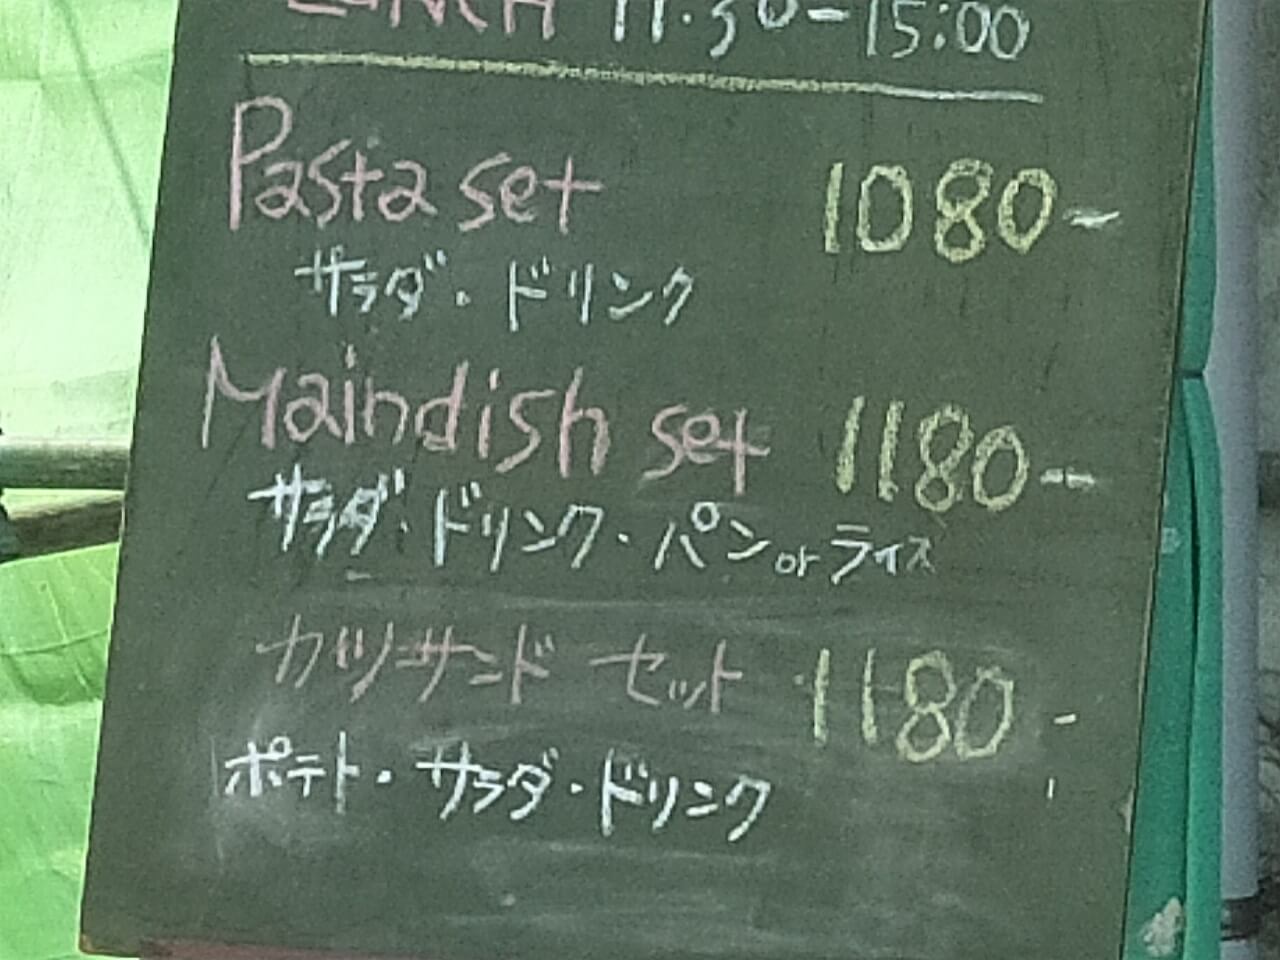 LUNCH 11:30-15:00
Pasta set 1080-
サラダ・ドリンク
Maindish set 1180-
サラダ・ドリンク・パン or ライス
カツサンド セット 1180-
ポテト・サラダ・ドリンク